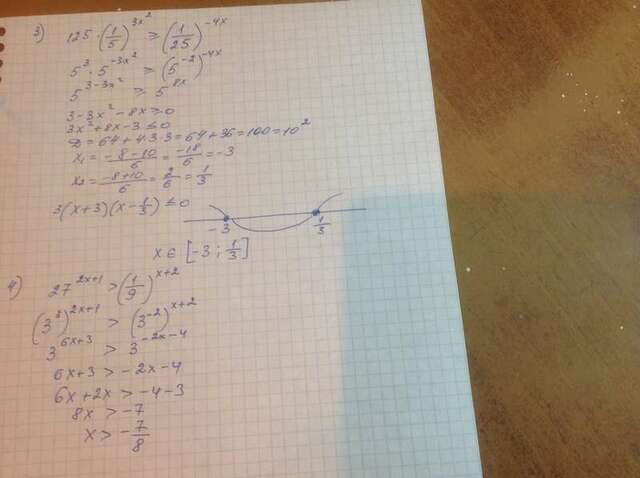 3) 125 · (1/5)^3x² ≥ (1/25)^-4x
5^3 · 5^-3x² ≥ (5^-2)^-4x
5^3-3x² ≥ 5^8x
3-3x²-8x≥0
3x²+8x-3≤0
D=64+4·3·3=64+36=100=10²
x₁=(-8-10)/6=-18/6=-3
x₂=(-8+10)/6=2/6=1/3
3(x+3)(x-1/3)≤0
-3 1/3
x∈[-3;1/3]
4) 27^2x+1 > (1/9)^x+2
(3^3)^2x+1 > (3^-2)^x+2
3^6x+3 > 3^-2x-4
6x+3>-2x-4
6x+2x>-4-3
8x>-7
x>-7/8